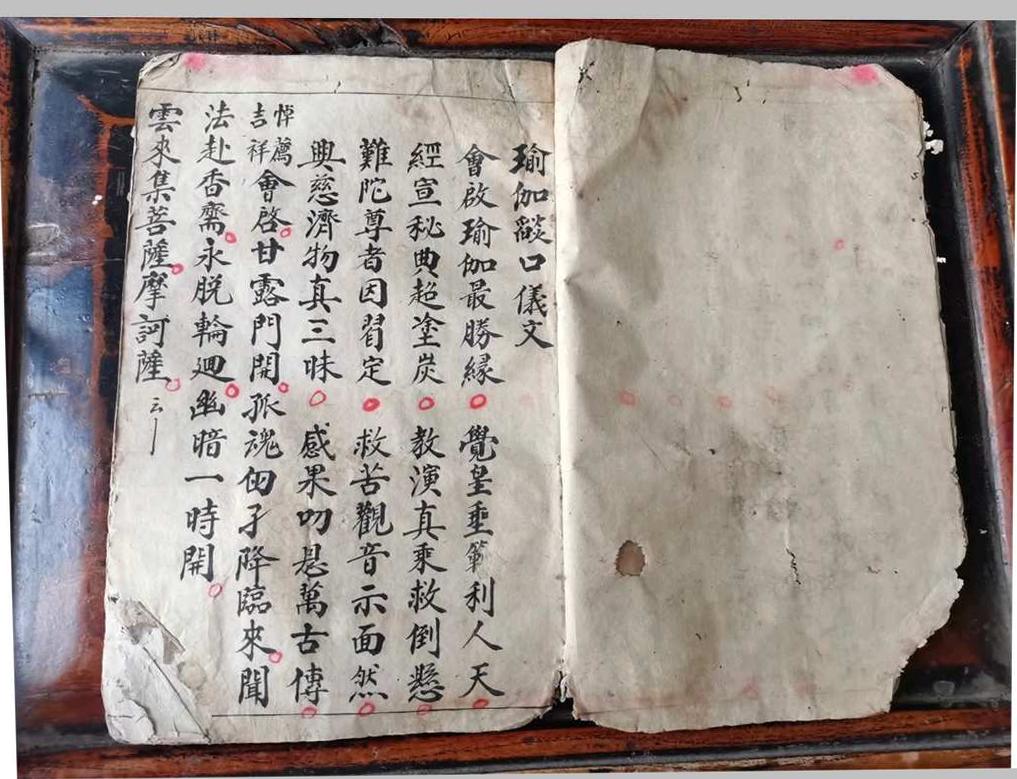 瑜伽燄口儀文
會啟瑜伽最勝緣 覺皇垂範利人天
經宣秘典超塗炭 教演真乘救倒懸
難陀尊者因習定 救苦觀音示面然
興慈濟物真三昧 感果叨恩萬古傳
悼薦
吉祥
會啓甘露門開孤魂佃子降臨來聞
法赴香齋永脱輪廻幽暗一時開
雲來集菩薩摩訶薩 云